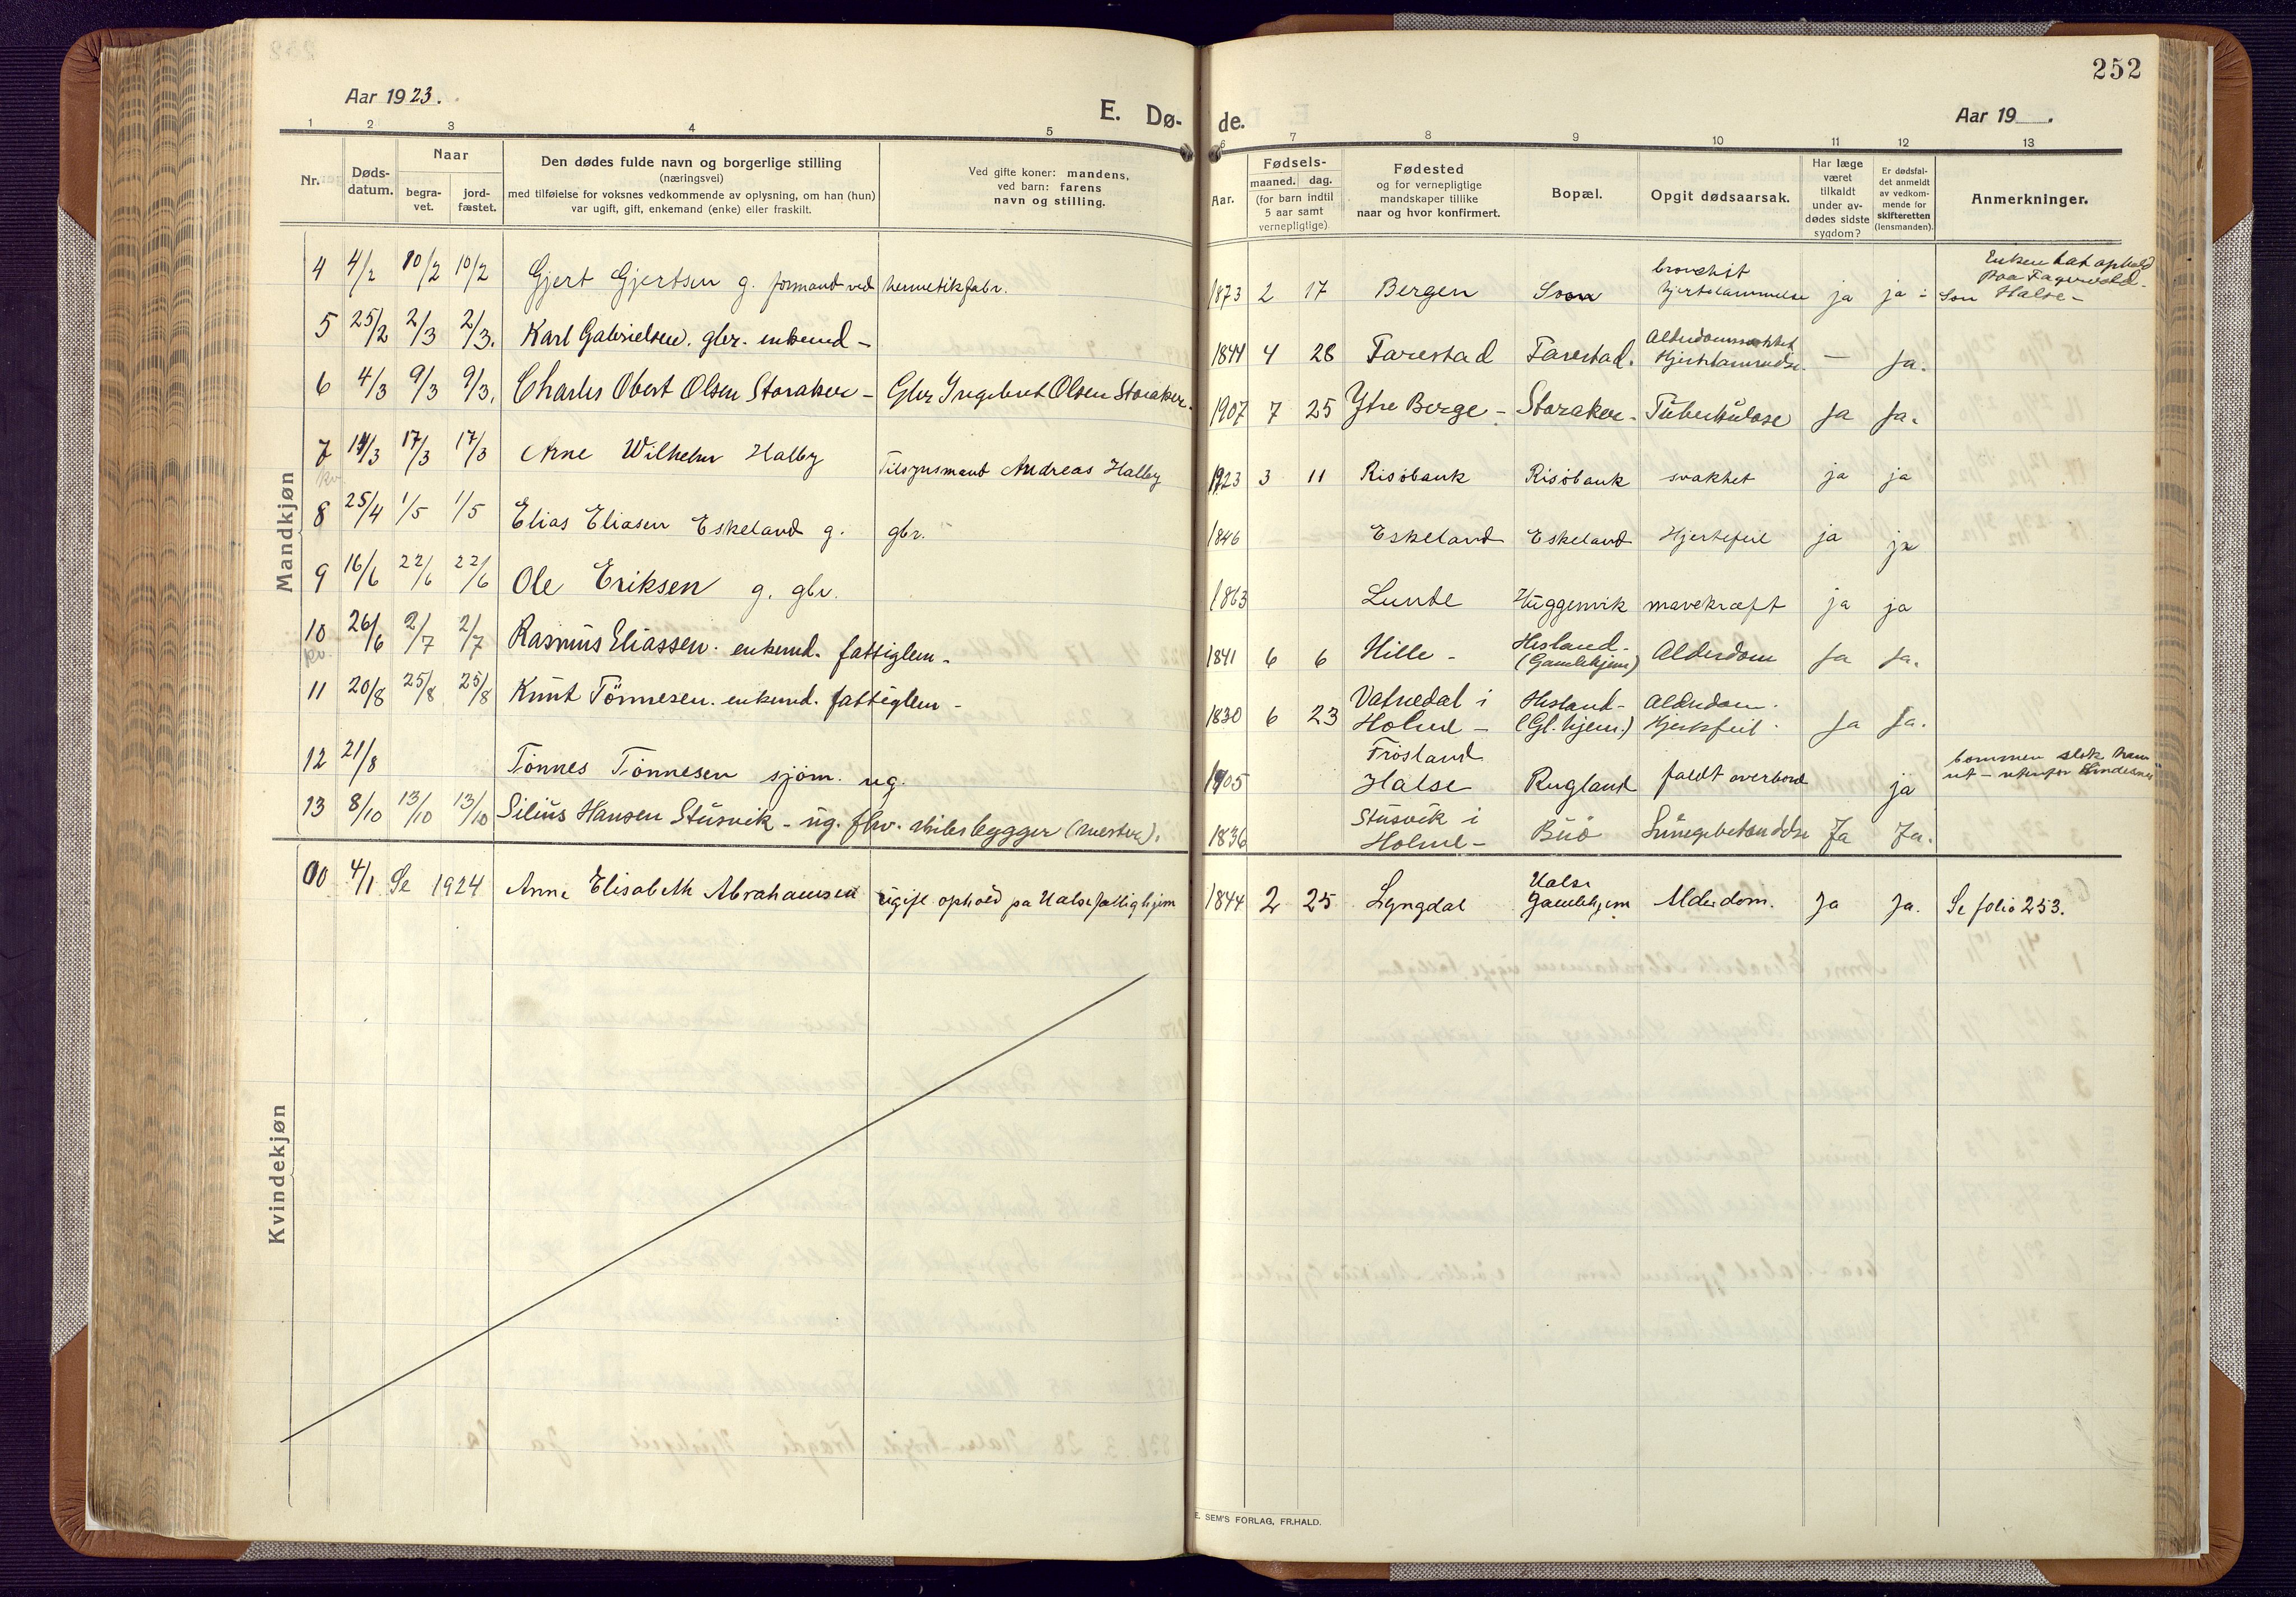 252
Aar 1923.
E. Dø-
de.
Aar 19 .
1 2 3 4 5 6 7 8 9 10 11 12 13
Nr.
Døds-
datum.
Naar
begra-
vet.
jord-
fæstet.
Den dødes fulde navn og borgerlige stilling
(næringsvei)
med tilføielse for voksnes vedkommende av oplysning, om han (hun)
var ugift, gift, enkemand (enke) eller fraskilt.
Ved gifte koner: mandens,
ved barn: farens
navn og stilling.
Aar.
Fødsels-
maaned. dag.
(for barn indtil
5 aar samt
vernepligtige)
Fødested
og for vernepligtige
mandskaper tillike
naar og hvor konfirmert.
Bopæl.
Opgit dødsaarsak.
Har læge
været
tilkaldt
under av-
dødes sidste
sygdom?
Er dødsfal-
det anmeldt
av vedkom-
mende for
skifteretten
(lensmanden).
Anmerkninger.
Mandkjøn
4 4/2 10/2 10/2 Gjert Gjertsen g. formand ved hermetikfabr. 1873 2 17 Bergen bronchit
hjertelammelse ja ja Enken har ophold
paa
Halse -
5 25/2 2/3 2/3. Karl Gabrielsen. gbr. enkemd - 1844 4 28 Farestad Farestad. Hjertelammelse. — Ja.
6 4/3 9/3 9/3. Charles Obert Olsen Storaker - Gbr Ingebret Olsen Storaker. 1907 7 25 Ytre Berge - Storaker - Tuberkulose Ja Ja.
7 14/3 17/3 17/3 Arne Wilhelm Halby Tilsynsmand Andreas Halby 1923 3 11 Risöbank Risöbank svakhet ja ja
kv.
8 25/4 1/5 1/5 Elias Eliasen Eskeland g. gbr. 1846 Eskeland Eskeland Hjertefeil ja ja
9 16/6 22/6 22/6 Ole Eriksen g. gbr. 1863 Lunde Huggenvik mavekræft ja ja
10 26/6 2/7 2/7 Rasmus Eliassen. enkemd. fattiglem. 1841 6 6 Hille - Hesland -
(Gamlehjem) Alderdom Ja Ja.
kv.
11 20/8 25/8 25/8 Knut Tönnesen. enkemd. fattiglem - 1830 6 23 Vatnedal i
Holme - Hesland -
(Gl. hjem.) Alderdom.
Hjertefeil. Ja Ja.
12 21/8 Tönnes Tönnesen sjöm. ug. 1905 Frösland
Halse Rugland faldt overbord ja bommen slok ham
ut - utenfor Lindesnes
13 8/10 13/10 13/10 Silius Hansen Stusvik - ug. fhv. skibsbygger (mester). 1836 Stusvik i
Holme - Buö Lungebetændelse Ja Ja.
Kvindekjøn
00 4/1 Se 1924 Anne Elisabeth Abrahamsen ugift ophold pa Halse fattighjem 1844 2 25 Lyngdal Halse
Gamlehjem Alderdom. Ja Ja. Se folio 253.
E. SEM'S FORLAG, FR.HALD.